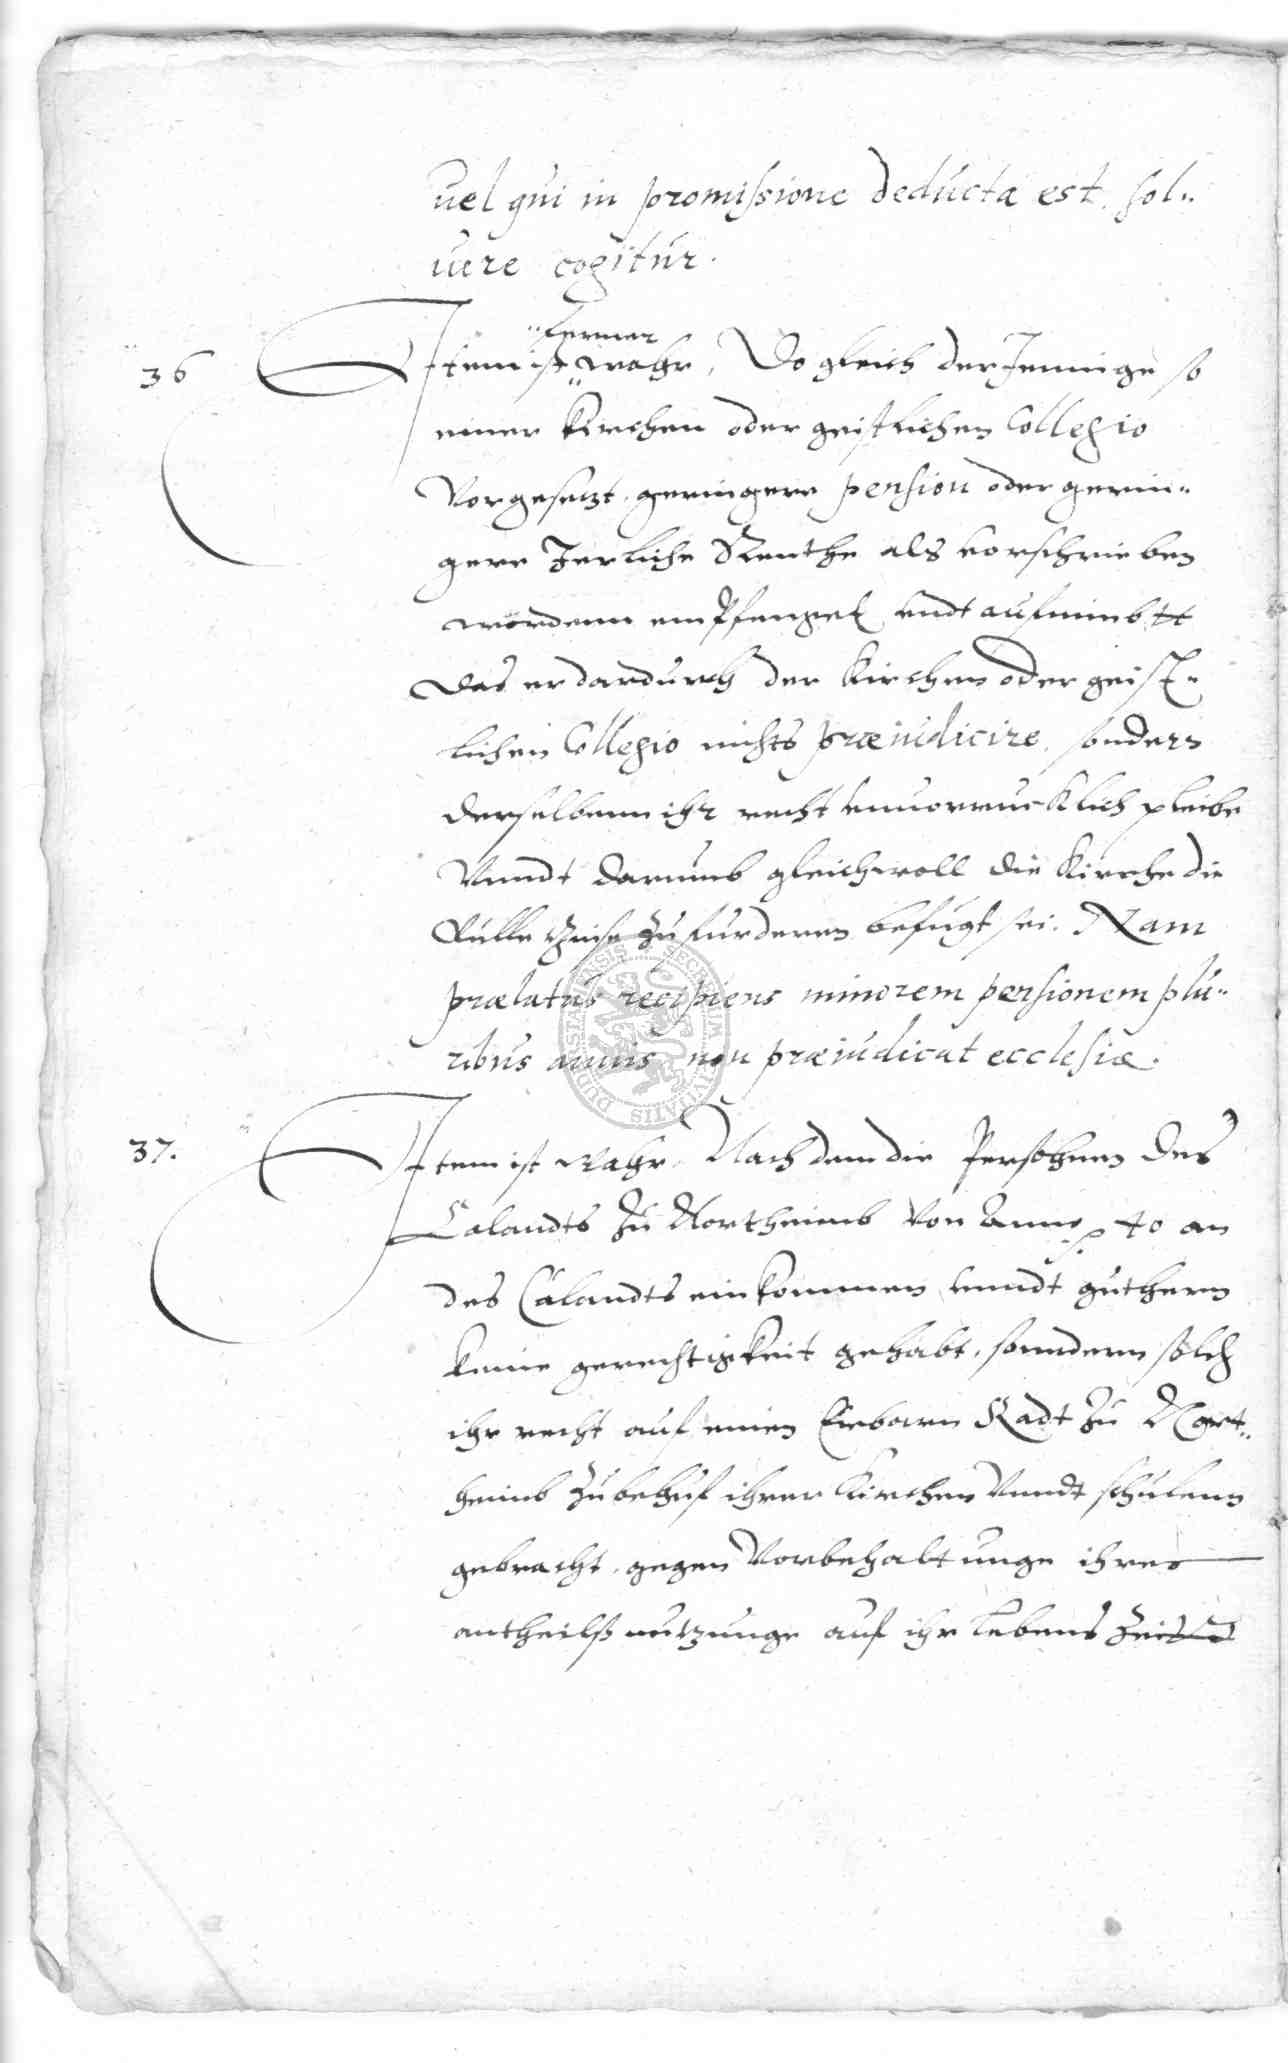 uel qui in promissione deducta est, sol¨
uere cogitur.
ferner
36 Item ist wahr, Do gleich derJennige so
einer Kirchen oder geistlichen Collegio
Vorgesetzt, geringere pension oder gerin¨
gere Jerliche Renthe als vorschrieben
wordenn empfenget vndt aufnimbtt
Das er dardurch der Kirchen oder geist¨
lichen Collegio nichts præiudicire, sondern
derselbenn ihr recht vnuorrucklich pleibe
Vnndt darumb gleichwoll die Kirche die
fulle Zinse zu furderen befugt sei. Nam
prælatus recipiens minorem pensionem plu¨
ribus annis non præiudicat ecclesiæ.
37. Item ist wahr, Nach dem die Persohnen des
Calandts zu Northeimb von Anno 40 an
des Calandts einkommen vnndt guthern
keine gerechtigkeit gehabt, sonndern solch
ihr recht auf einen Erbarn Radt zu Nort¨
heimb zu behuf ihrer Kirchen Vnndt schulenn
gebracht, gegen Vorbehaltunge ihres
antheilß nutzunge auf ihr lebens Zeit
SECRETUM CIVITATIS DUDERSTADENSIS